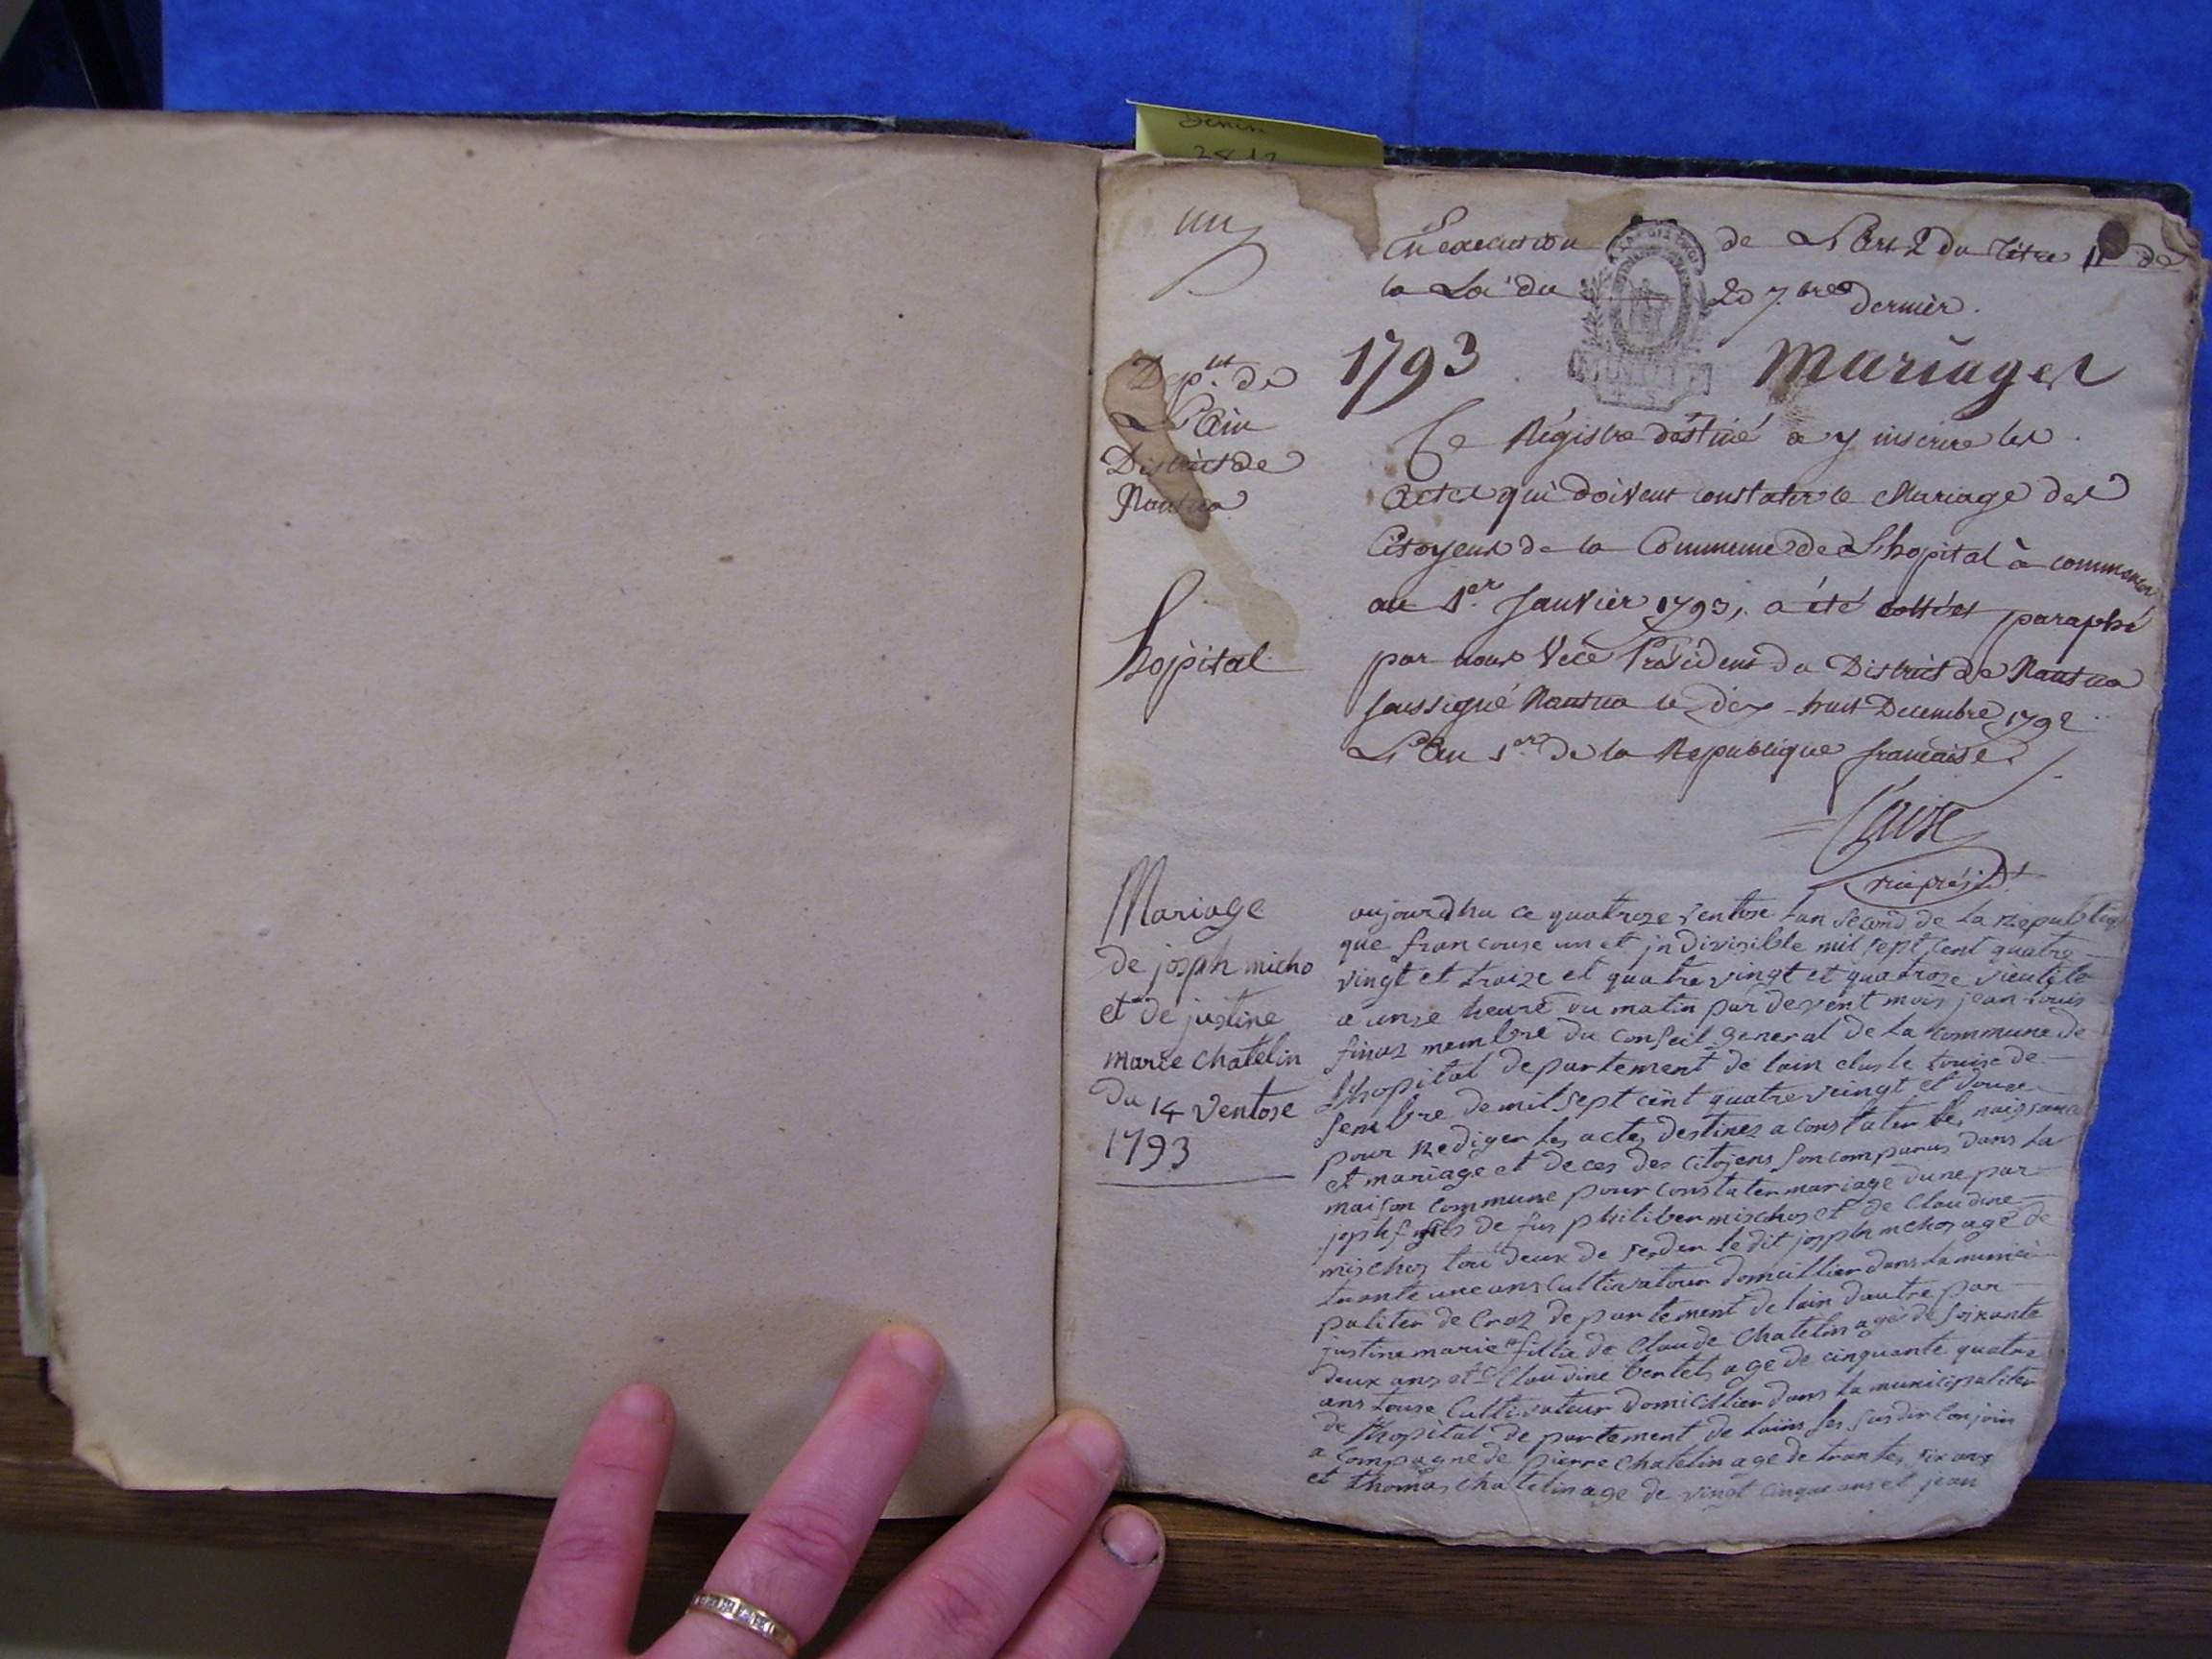 un
En execution de L'Art 2 du Titre 11 de
la Loi du 20 7.bre dernièr.
Dep.nt de
L'Ain
District de
Nantua
1793 Mariages
hopital
Ce Régistre déstiné a y inscrire les
Actes qui doivent constater le Mariage des
Citoyens de la Commune de L'hopital à commencer
au 1.er Janvièr 1793, a été cotté et paraphé
par nous Vice Président du District de Nantua
soussigné Nantua le dix-huit Decembre 1792
L'an 1.er de la Republique francaise.
vice présidt.
Mariage
de josph micho
et de justine
marie chatelin
du 14 ventose
1793
aujourdhu ce quatroze ventose lan second de la Republi
que francouse un et jndivisible mil sept cent quatre
vingt et traize et quatre vingt et quatroze
a unze heure du matin par devent mois jean Louis
finaz membre du conseil general de la commune de
Lhopital departement de lain eluste douise de
sembre de mil sept cent quatre veingt et douze
pour Rediger les actes destinez a constater les naissance
et mariage et deces des citojens son comparus dans la
maison commune pour constater mariage dune par
josphf fils de fus philiber mischos et de Claudine
mischos tou deux de serden le dit josph mchos age de
trante une ans Cultivatour domicillier dans la munici
paliter de Craz departement de lain dautre par
justine marie fillie de Claude Chatelin agé de soixante
deux ans et Claudine bertet age de cinquante quatre
ans touse Cultivateur domicillier dans la municipaliter
de Lhopital departement de lains les susdir conjoin
a compagne de pierre chatelin age de trante six ans
et thomas chatelin age de vingt cinque ans et jean